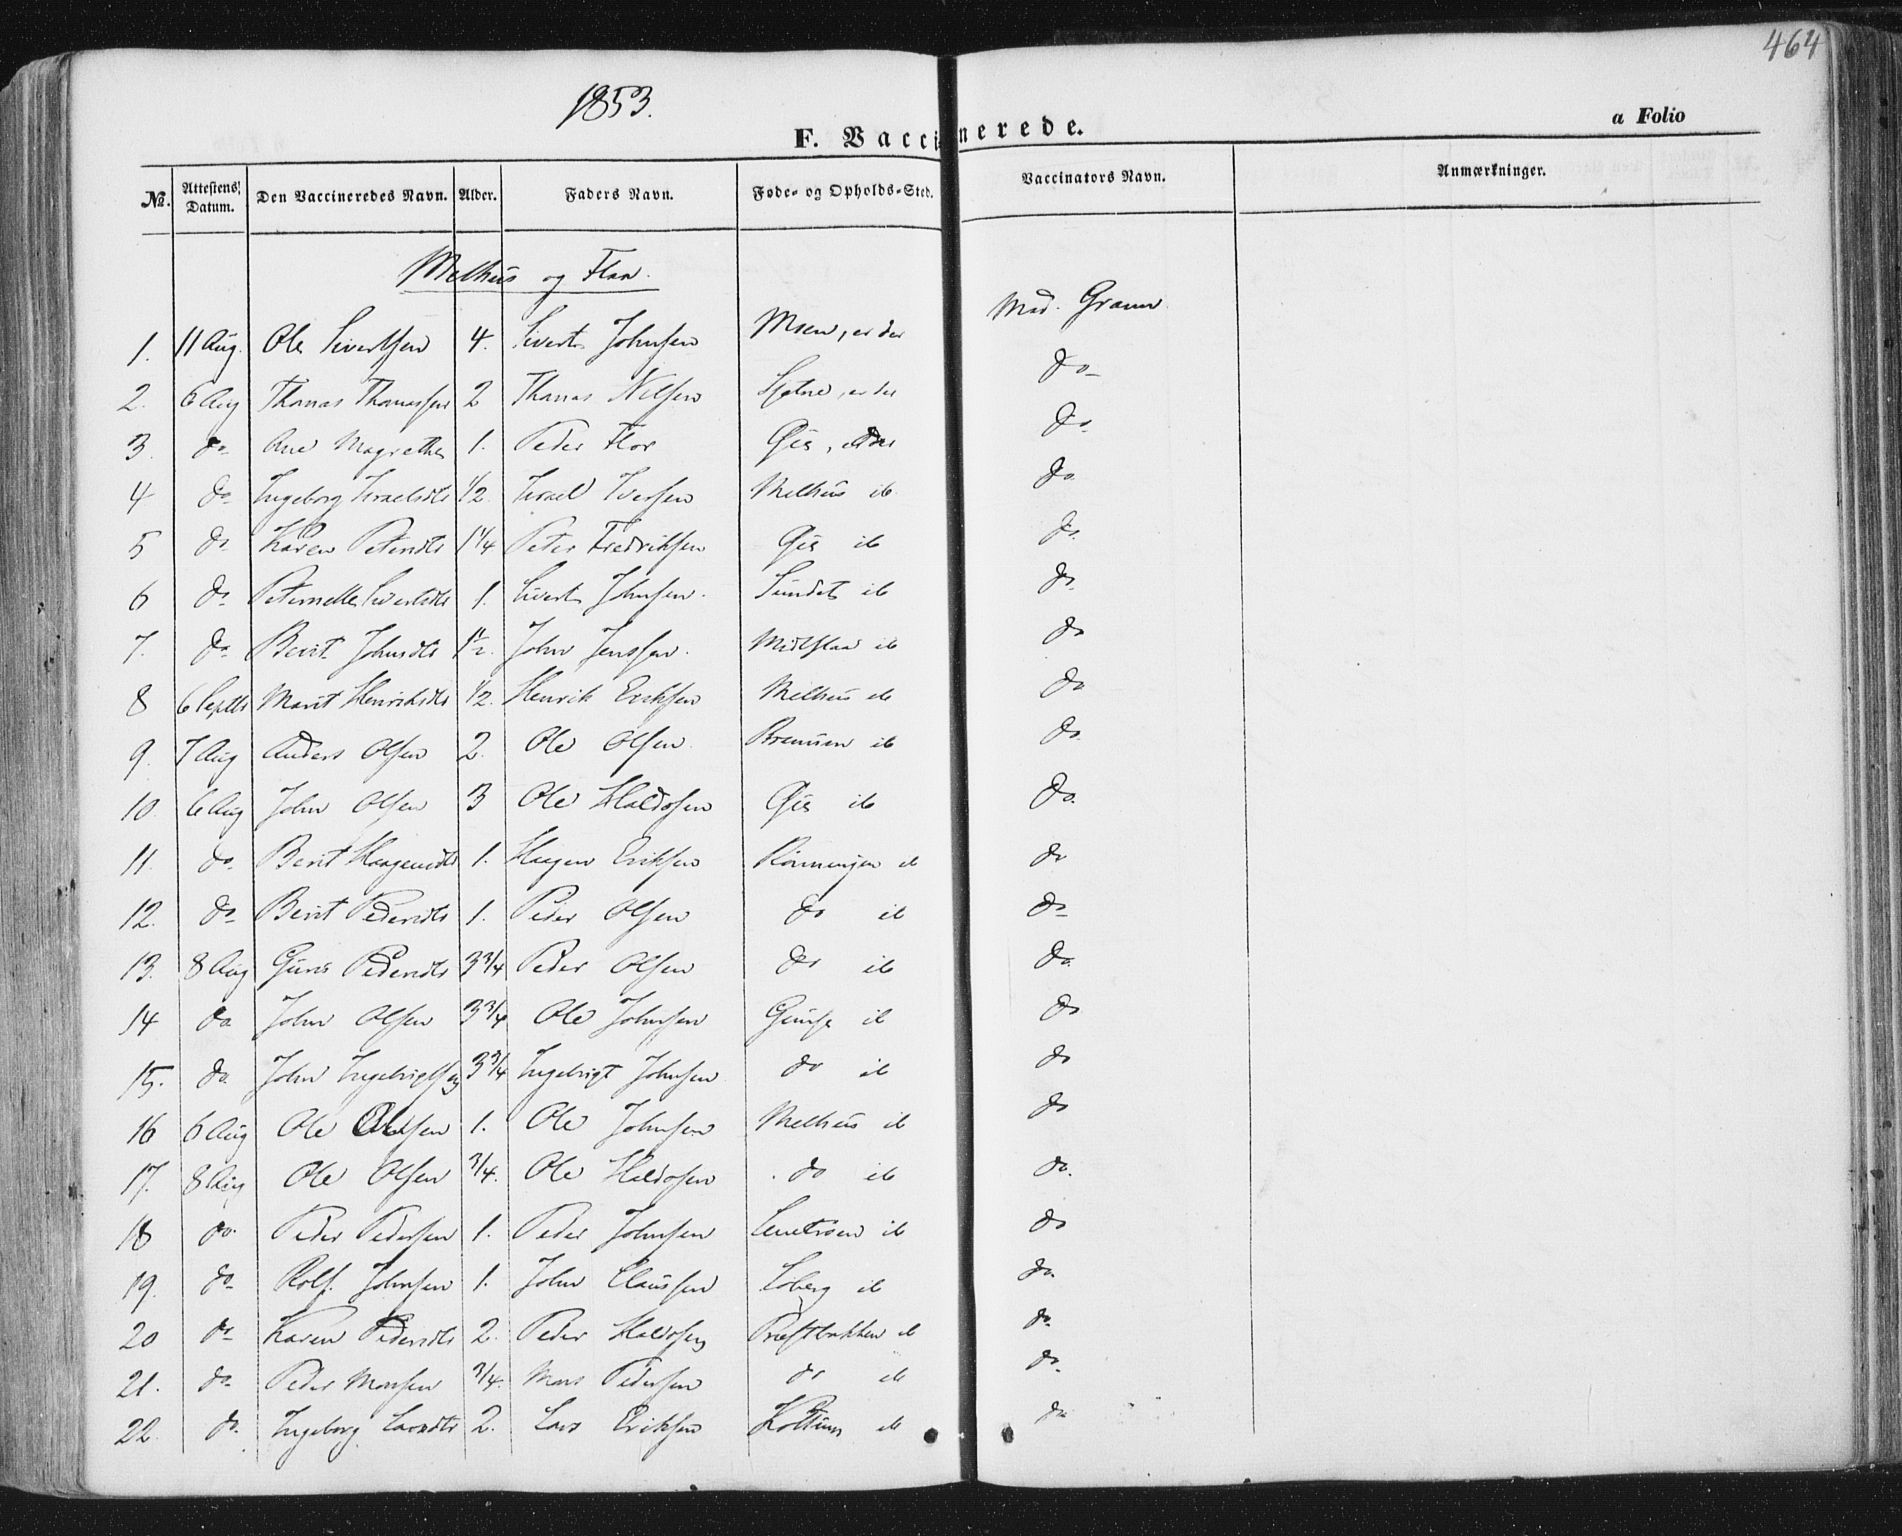 464
1853.
F. Vaccinerede.
a Folio
No. Attestens Datum. Den Vaccineredes Navn. Alder. Faders Navn. Føde- og Opholds-Sted. Vaccinators Navn. Anmærkninger.
Melhus og Flaa.
1. 11 Aug. Ole Sivertsen 4. Sivert Johnsen Moen, er der Mad. Gram
2. 6 Aug Thomas Thomassen 2 Thomas Nilsen er der do
3. do Ane Magrethe 1. Peder Flor Øie, er der do
4 do Ingeborg Israelsdtr 1/2. Israel Iversen Melhus ib do.
5 do Karen Petersdtr 1 1/4 Peter Fredriksen Øie ib do.
6 do Peternelle Sivertsdtr 1. Sivert Johnsen. Sundet ib do.
7. do Berit Johnsdtr 1 1/2. John Jenssen. ib do
8 6 Septbr Marit Henriksdtr 1/2. Henrik Eriksen Melhus ib do
9. 7 Aug Anders Olsen 2. Ole Olsen ib do
10. 6 Aug John Olsen 3 Ole Haldosen Øie ib do.
11. do Berit Haagensdtr 1. Haagen Eriksen Rønningen ib do
12. do Berit Pedersdtr 1. Peder Olsen do ib do
13. 8 Aug Guru Pedersdtr 3 3/4 Peder Olsen do ib do.
14 do John Olsen 3 3/4 Ole Johnsen Gimse ib do
15. do John Ingebrigtsen 3 3/4 Ingebrigt Johnsen do ib do
16 6 Aug Ole Olsen 1. Ole Johnsen Melhus ib do
17. 8 Aug Ole Olsen 3/4. Ole Haldosen do ib do.
18 do. Peder Pedersen 1. Peder Johnsen ib do
19. do Rolf Johnsen 1. John Claussen Loberg ib do.
20 do Karen Pedersdtr 2. Peder Haldosen Præstbakken ib do.
21. do Peder Monsen 3/4. Mons Pedersen do ib do.
22. do Ingeborg Larsdtr 2. Lars Eriksen ib do